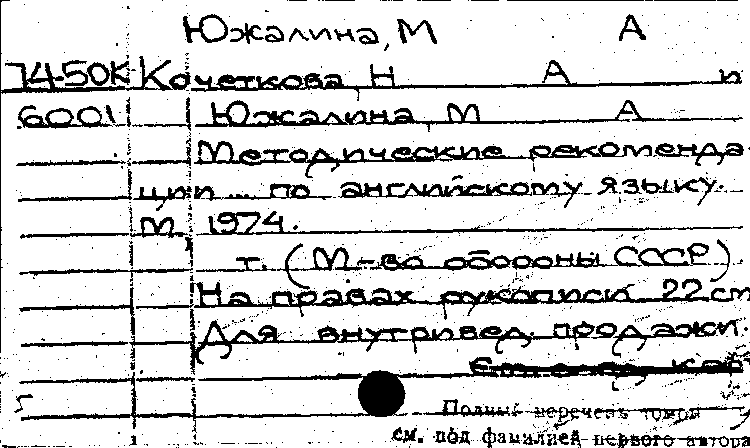 Южалина, М А
74-50К Кочеткова, Н А и
6001 Южалина, М А
Методические рекоменда-
ции ... по английскому языку.
М., 1974.
т. (М-во обороны СССР)
На правах рукописи. 22 см
Для внутривед. продажи.
Полный перечень томов
см. под фамилией первого автора